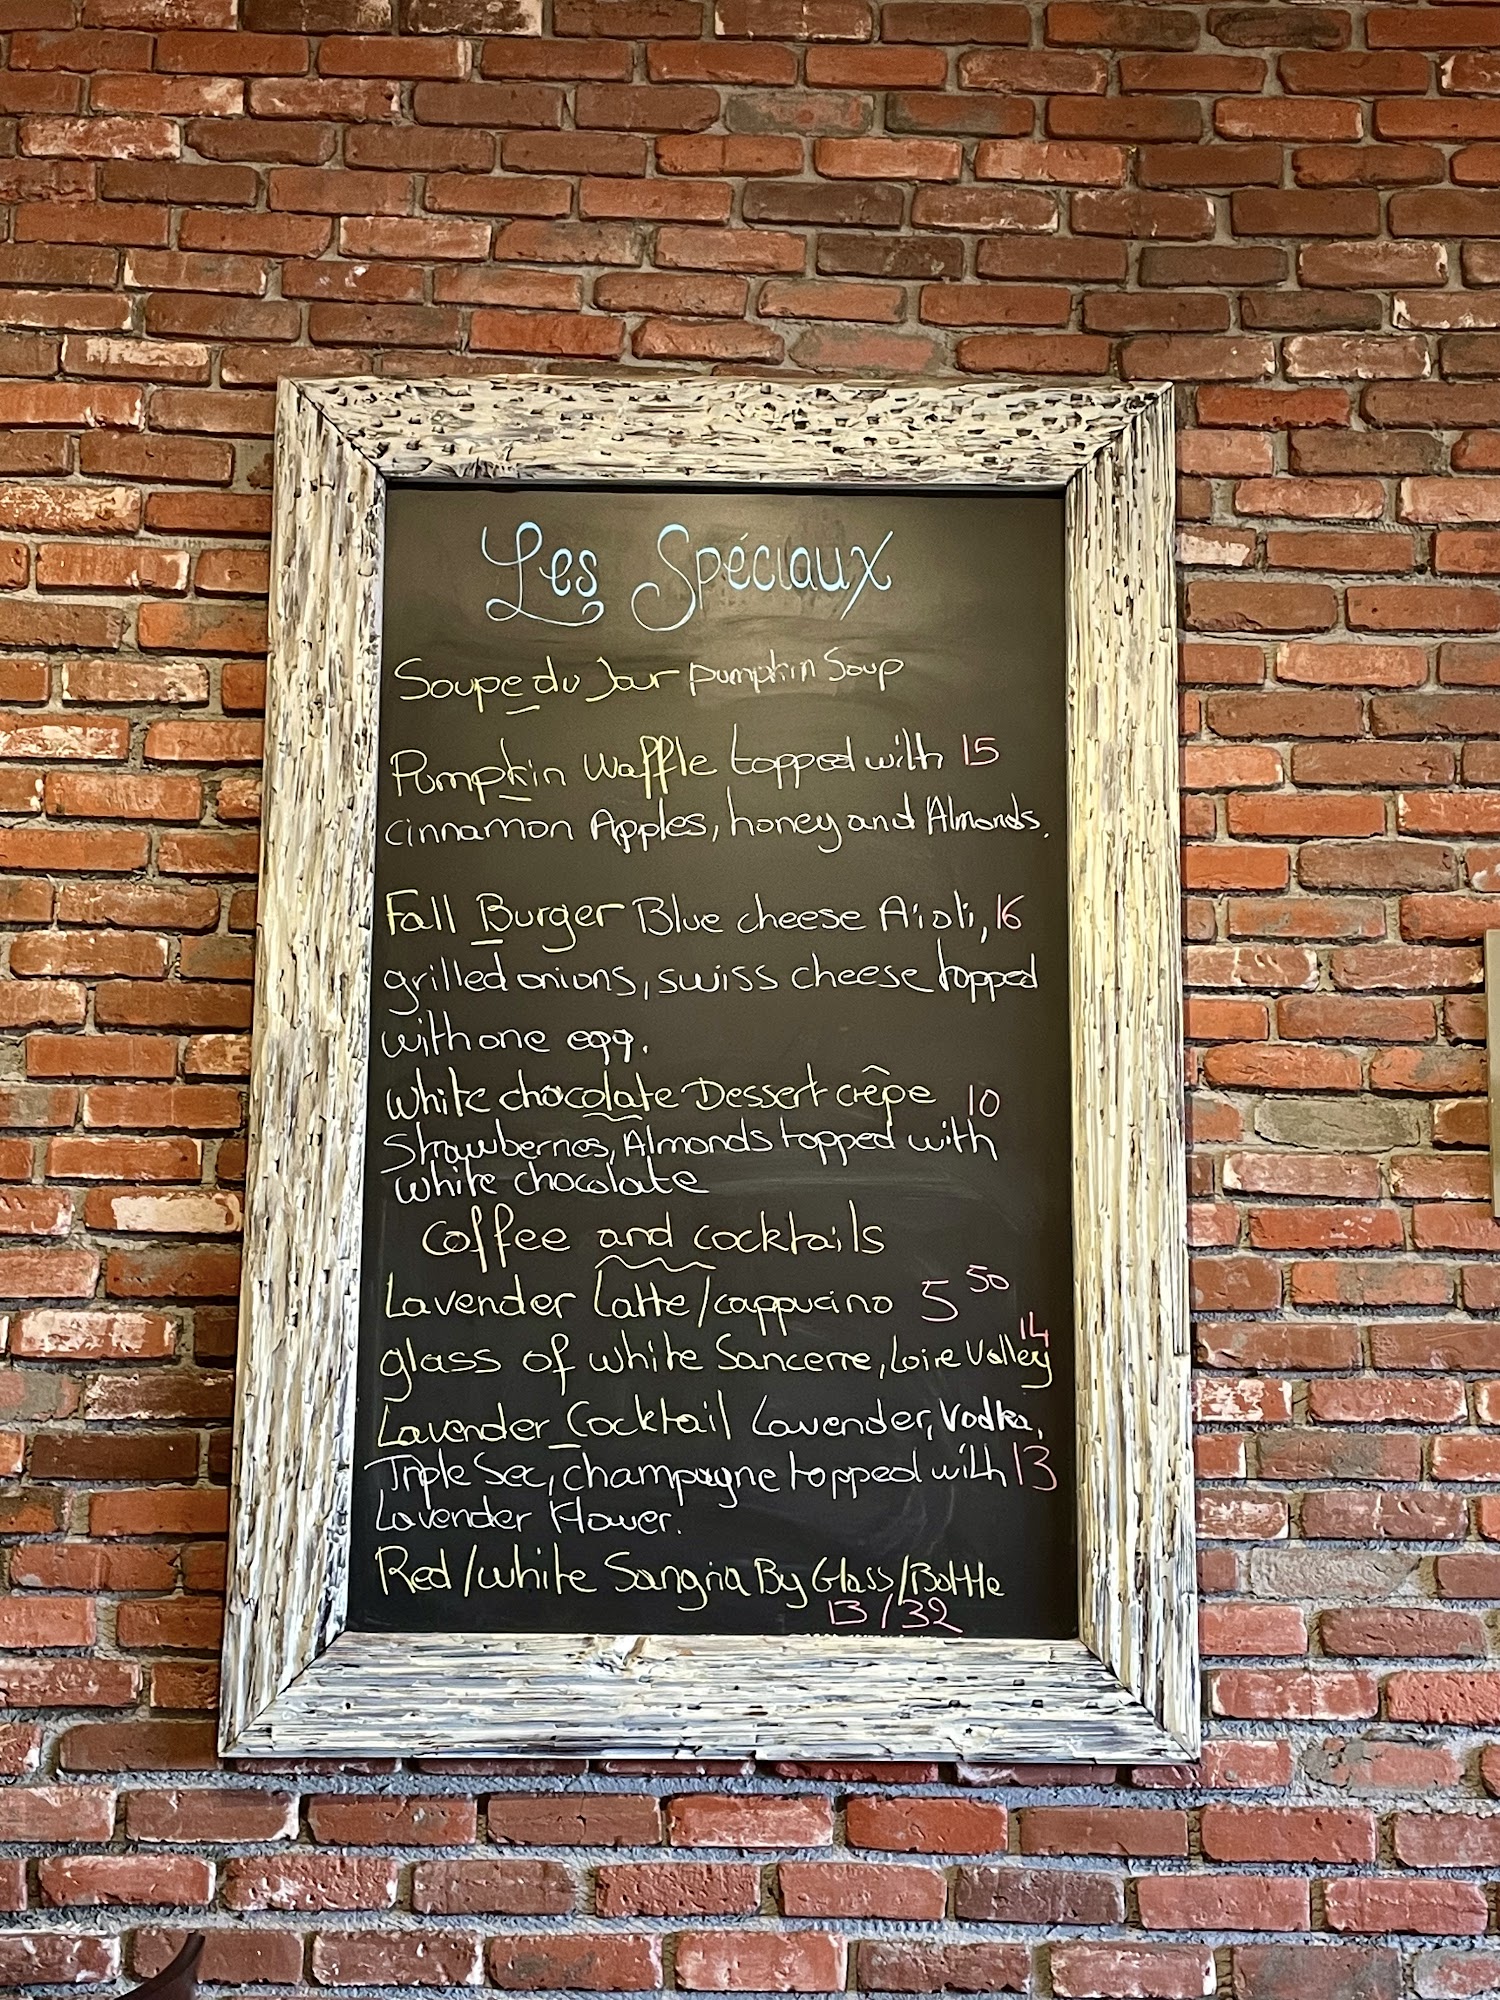 Les Spéciaux
Soupe du Jour pumpkin Soup
Pumpkin Waffle topped with 15
cinnamon Apples, honey and Almonds.
Fall Burger Blue cheese Aioli, 16
grilled onions, swiss cheese topped
with one egg.
White chocolate Dessert crêpe 10
Strawberries, Almonds topped with
white chocolate
Coffee and cocktails
Lavender Latte/cappucino 5 50
glass of white Sancerre, Loire Valley 14
Lavender Cocktail Lavender, Vodka,
Triple Sec, champagne topped with 13
Lavender Flower.
Red/white Sangria By Glass/Bottle
13/32